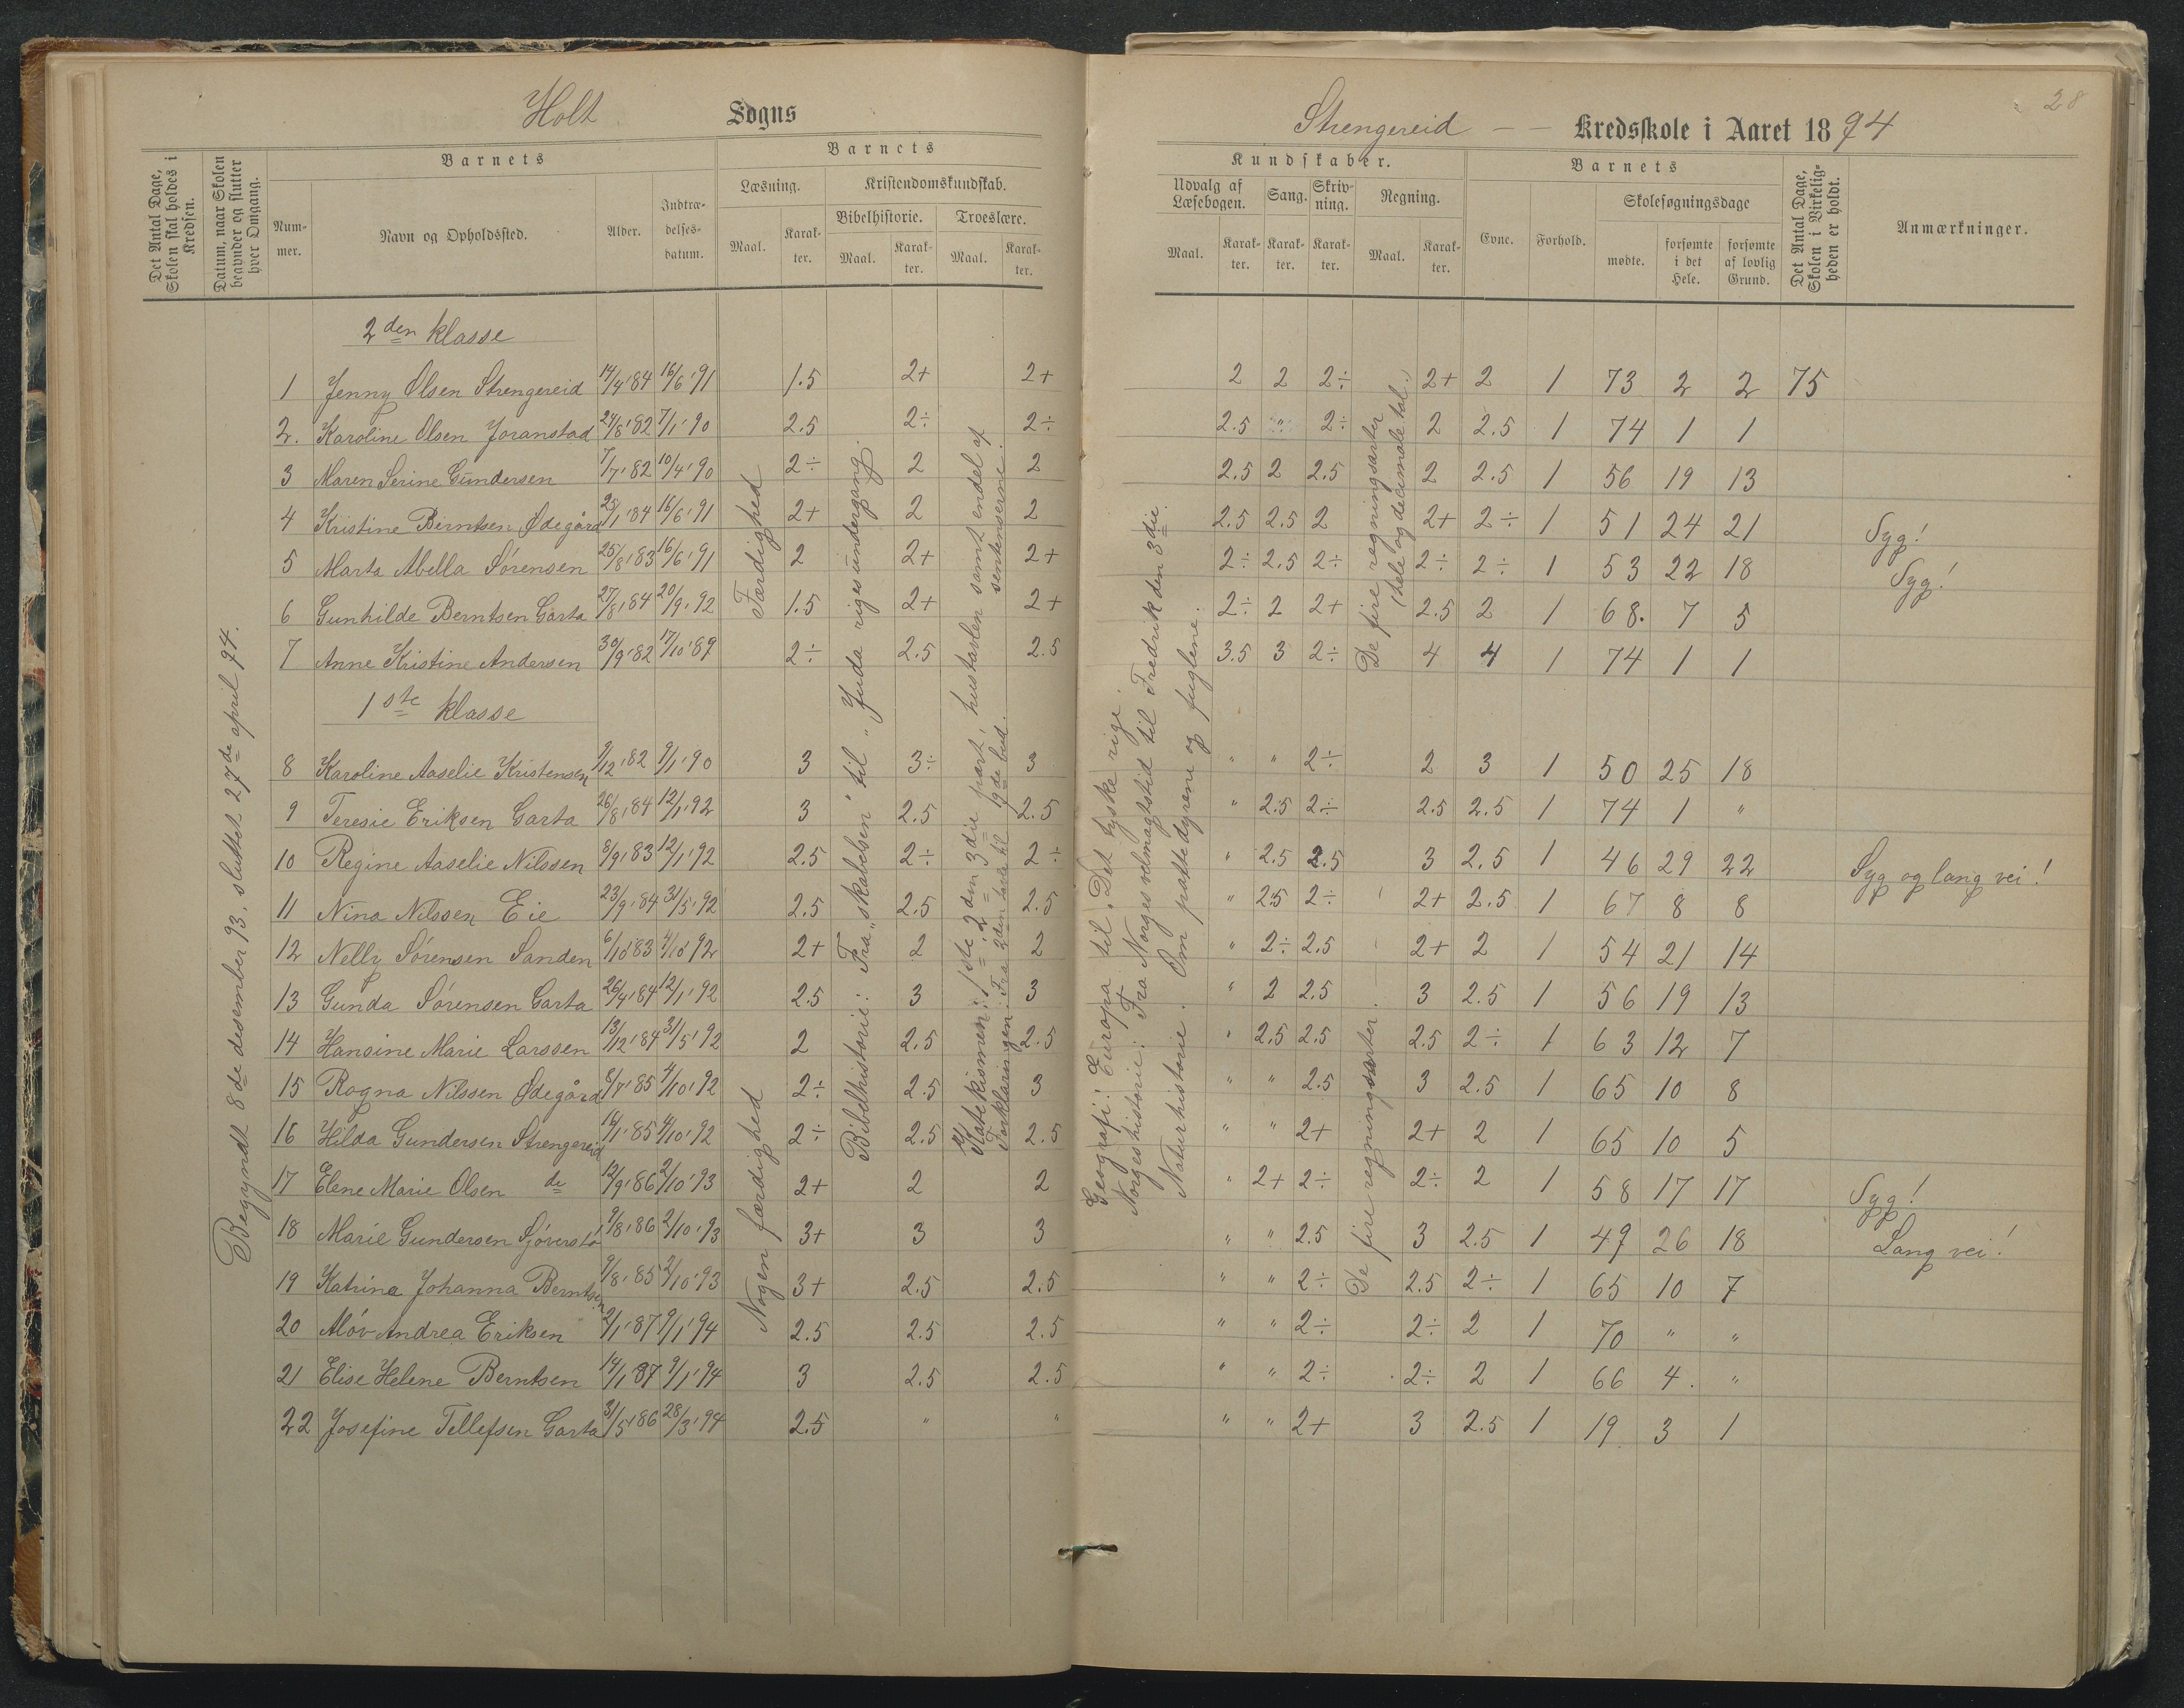 Holt Sogns
Strengereid — — Kredsskole i Aaret 1894
28
Det Antal Dage, Skolen skal holdes i Kredsen.
Datum, naar Skolen begynder og slutter hver Omgang.
Barnets
Num-mer.
Navn og Opholdssted.
Alder.
Indtræ-delses-datum.
Barnets
Læsning.
Maal.
Karak-ter.
Kristendomskundskab.
Bibelhistorie.
Maal.
Karak-ter.
Troeslære.
Maal.
Karak-ter.
Kundskaber.
Udvalg af Læsebogen.
Maal.
Karak-ter.
Sang.
Karak-ter.
Skriv-ning.
Karak-ter.
Regning.
Maal.
Karak-ter.
Barnets
Evne.
Forhold.
Skolesøgningsdage
mødte.
forsømte i det Hele.
forsømte af lovlig Grund.
Det Antal Dage, Skolen i Virkelig-heden er holdt.
Anmærkninger.
Begyndt 8de desember 93, sluttet 27de april 94.
2den klasse
1 Jenny Olsen Strengereid 14/4'84 16/6'91 1.5 2+ 2+ 2 2 2÷ 2+ 2 1 73 2 2 75
2. Karoline Olsen Joranstad 24/8'82 7/1'90 2.5 2÷ 2÷ 2.5 " 2÷ 2 2.5 1 74 1 1
3 Maren Serine Gundersen 7/7'82 10/4'90 2÷ 2 2 2.5 2 2.5 2 2.5 1 56 19 13
4 Kristine Berntsen Ødegård 25/1'84 16/6'91 2+ 2 2 2.5 2.5 2 2+ 2÷ 1 51 24 21 Syg!
5 Marta Abella Sörensen 25/8'83 16/6'91 2 2+ 2+ 2÷ 2.5 2÷ 2÷ 2÷ 1 53 22 18 Syg!
6 Gunhilde Berntsen Garta 27/8'84 20/9'92 1.5 2+ 2+ 2÷ 2 2+ 2.5 2 1 68. 7 5
7 Anne Kristine Andersen 30/9'82 17/10'89 2÷ 2.5 2.5 3.5 3 2÷ 4 4 1 74 1 1
1ste klasse
8 Karoline Aaselie Kristensen 9/12'82 9/1'90 3 3÷ 3 " " 2÷ 2 3 1 50 25 18
9 Teresie Eriksen Garta 26/8'84 12/1'92 3 2.5 2.5 " 2.5 2÷ 2.5 2.5 1 74 1 "
10 Regine Aaselie Nilssen 8/9'83 12/1'92 2.5 2÷ 2÷ " 2.5 2.5 3 2.5 1 46 29 22 Syg og lang vei!
11 Nina Nilssen Eie 23/9'84 31/5'92 2.5 2.5 2.5 " 2.5 2÷ 2+ 2.5 1 67 8 8
12 Nelly Sörensen Sanden 6/10'83 4/10'92 2+ 2 2 " 2÷ 2.5 2+ 2 1 54 21 14
13 Gunda Sörensen Garta 26/4'84 12/1'92 2.5 3 3 " 2 2.5 3 2.5 1 56 19 13
14 Hansine Marie Larssen 13/12'84 31/5'92 2 2.5 2.5 " 2.5 2.5 2.5 2÷ 1 63 12 7
15 Ragna Nilssen Ødegård 8/7'85 4/10'92 2÷ 2.5 3 " " 2.5 3 2.5 1 65 10 8
16 Hilda Gundersen Strengereid 14/1'85 4/10'92 2÷ 2.5 2.5 " " 2+ 2+ 2 1 65 10 5
17 Elene Marie Olsen do 12/9'86 2/10'93 2+ 2 2 " 2+ 2÷ 2÷ 2 1 58 17 17 Syg!
18 Marie Gundersen 9/8'86 2/10'93 3+ 3 3 " " 2.5 3 2.5 1 49 26 18 Lang vei!
19 Katrine Johanna Berntsen 9/8'85 2/10'93 3+ 2.5 2.5 " " 2÷ 2.5 2÷ 1 65 10 7
20 Alöv Andrea Eriksen 2/1'87 9/1'94 2.5 2.5 2.5 " " 2÷ 2÷ 2 1 70 " "
21 Elise Helene Berntsen 14/1'87 9/1'94 3 2.5 2.5 " " 2÷ 2÷ 2 1 66 4. "
22 Josefine Tellefsen Garta 31/5'86 28/3'94 2.5 " " " " 2+ 3 2.5 1 19 3 1
Færdighed
Nogen færdighed
Bibelhistorie: Fra „skabelsen" til „Juda riges undergang.
Katekismen: 1ste, 2den 3die part, hustavlen samt endel af sentenserne.
Forklaringen: Fra 2den tavle til 9de bud.
Geografi: Europa til „Det tyske rige.
Norgeshistorie: Fra Norges velmagtstid til Fredrik den 3die.
Naturhistorie. Om pattedyrene og fuglene.
De fire regningsarter (hele og decimale tal.)
De fire regningsarter.